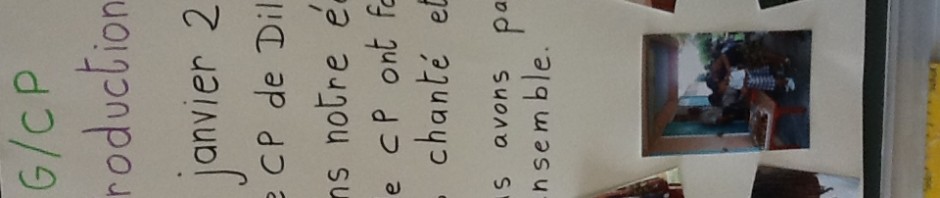 G/CP
roduction
janvier 2
CP de Dil
ns notre é
e CP ont fa
chanté et
s avons pa
nsemble.